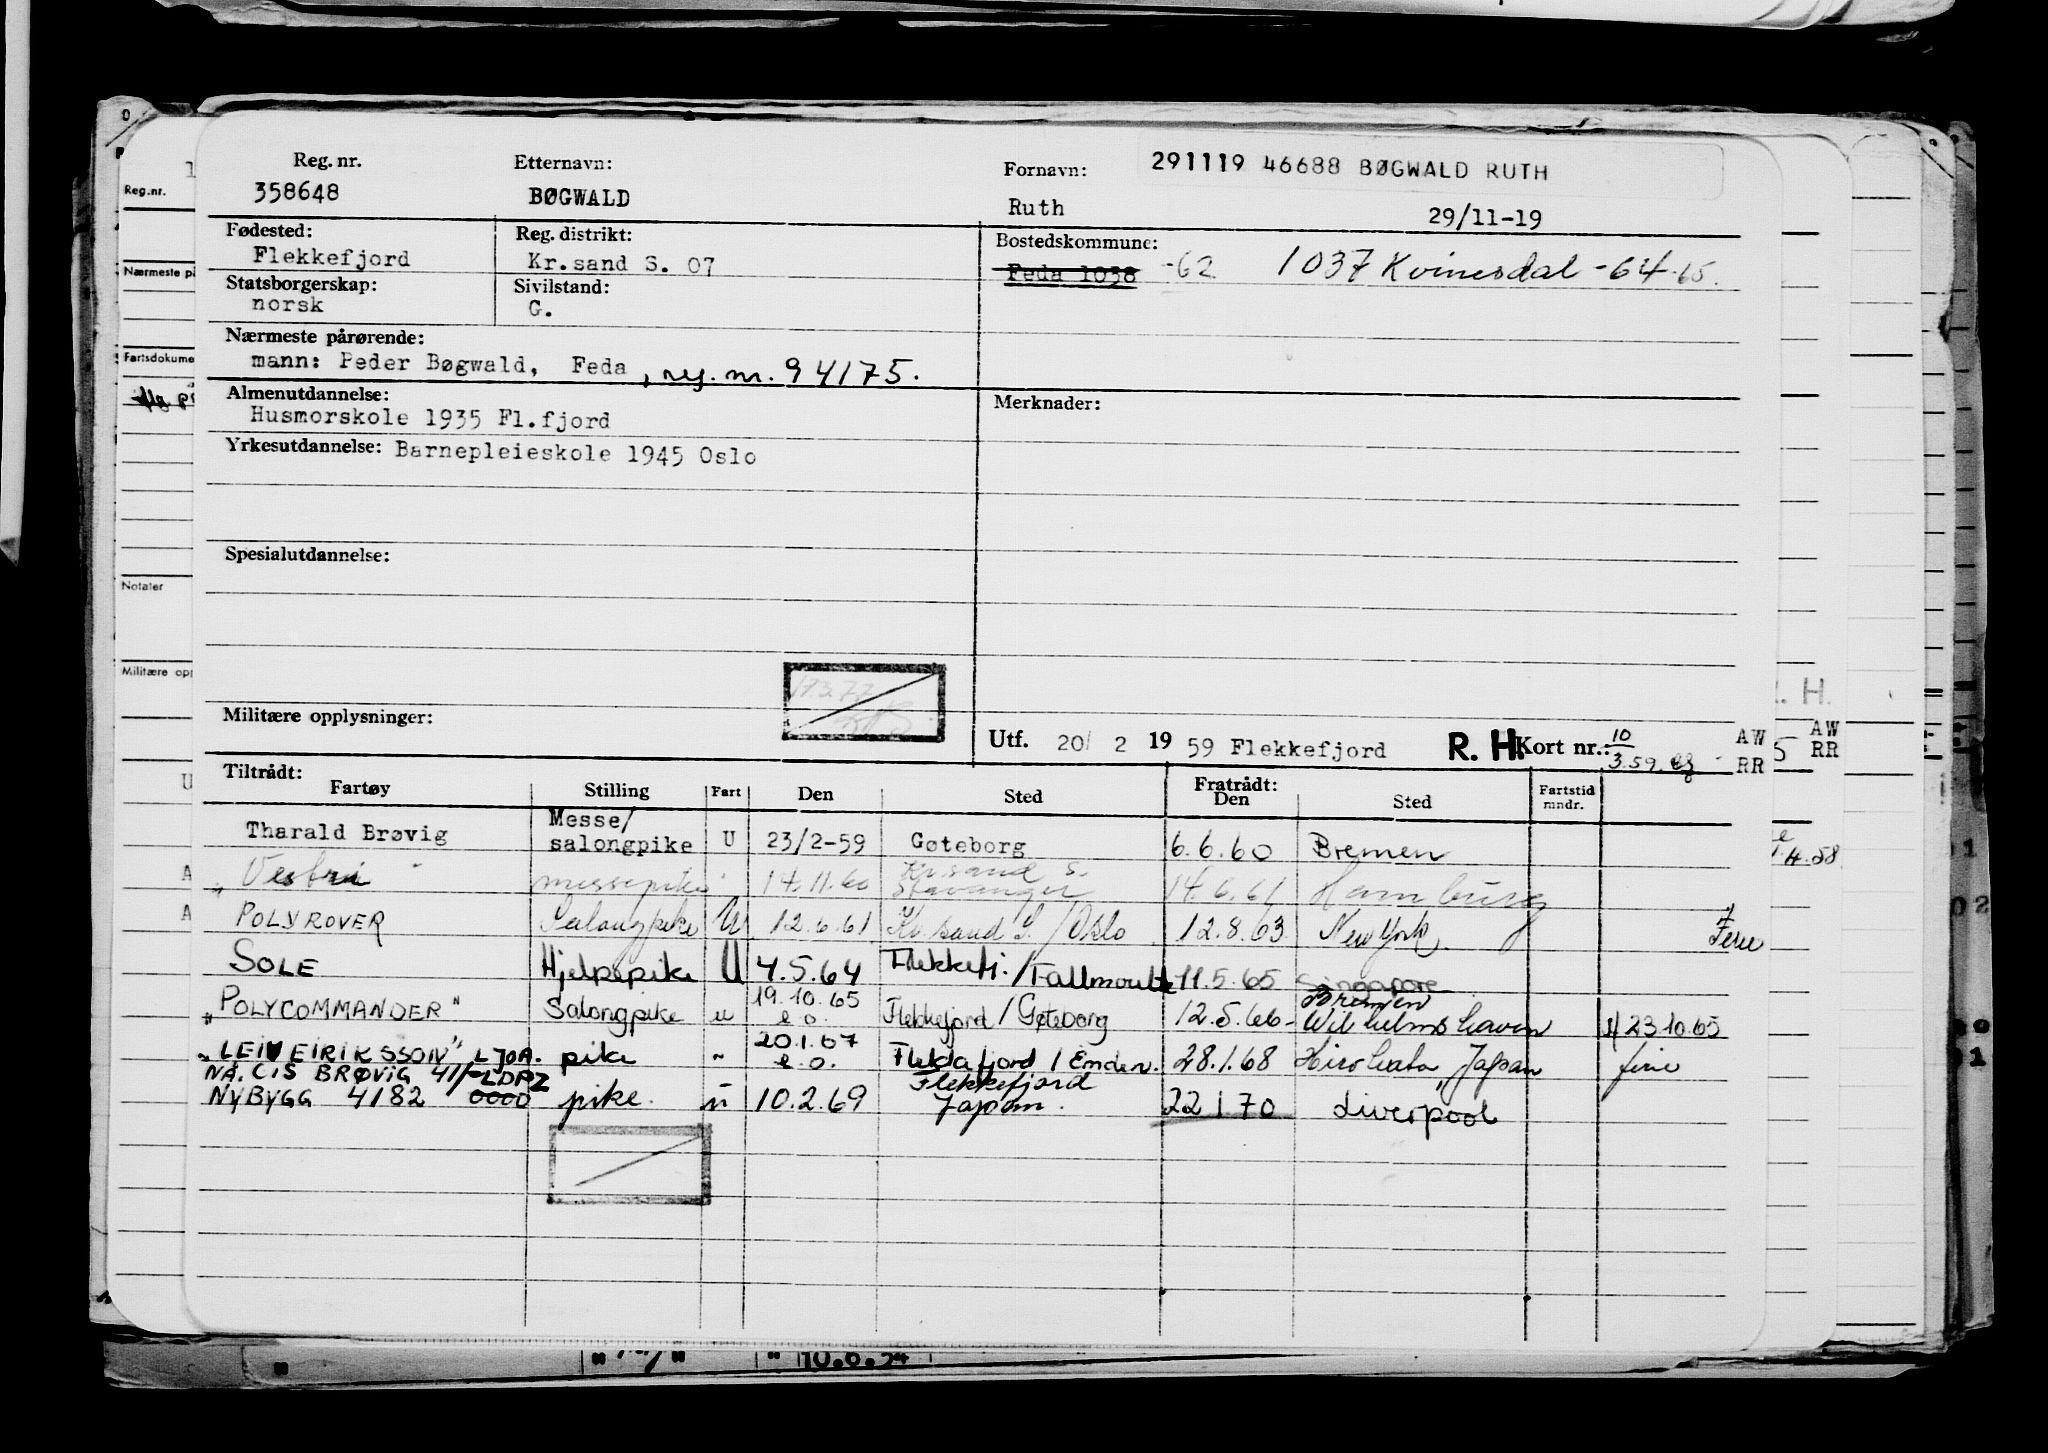 Reg. nr. Etternavn: Fornavn: 291119 46688 BØGWALD RUTH
358648 BØGWALD Ruth 29/11-19
Fødested: Reg. distrikt: Bostedskommune:
Flekkefjord Kr.sand S. 07 Feda 1038 -62 1037 Kvinesdal -64-65.
Statsborgerskap: Sivilstand:
norsk G.
Nærmeste pårørende:
mann: Peder Bøgwald, Feda, reg. nr. 94175.
Almenutdannelse: Merknader:
Husmorskole 1935 Fl.fjord
Yrkesutdannelse: Barnepleieskole 1945 Oslo
Spesialutdannelse:
Militære opplysninger:
Utf. 20/ 2 19 59 Flekkefjord R. H. Kort nr.: 10/3.59. AW
RR
Tiltrådt: Fratrådt:
Fartøy Stilling Fart Den Sted Den Sted Fartstid mndr.
Tharald Brøvig Messe/salongpike U 23/2-59 Gøteborg 6.6.60 Bremen
"Vestri" messepike 14.11.60 Kr.sand S. Stavanger 14.6.61 Hamburg
POLYROVER Salongpike U 12.6.61 Kr.sand S./Oslo 12.8.63 New York Ferie
SOLE Hjelpepike U 4.5.64 Flekkefj./Fallmouth 11.5.65 Singapore
"POLYCOMMANDER" Salongpike u 19.10.65 e.o. Flekkefjord/Gøteborg 12.5.66- Bremen Wilhelmshaven 23.10.65
"LEIV EIRIKSSON" LJOA. pike " 20.1.67 e.o. Flekkefjord/Emden. 28.1.68 Hirohata, Japan ferie
NA. CIS BRØVIG 41/-LDPZ
NYBYGG 4182 0000 pike. ü 10.2.69 Flekkefjord Japan. 22 1 70 Liverpool
Reg.nr.
Nærmeste på
Fartsdokume
Notater
Militære opp
. H.
AW
RR
4.58
10.6.54